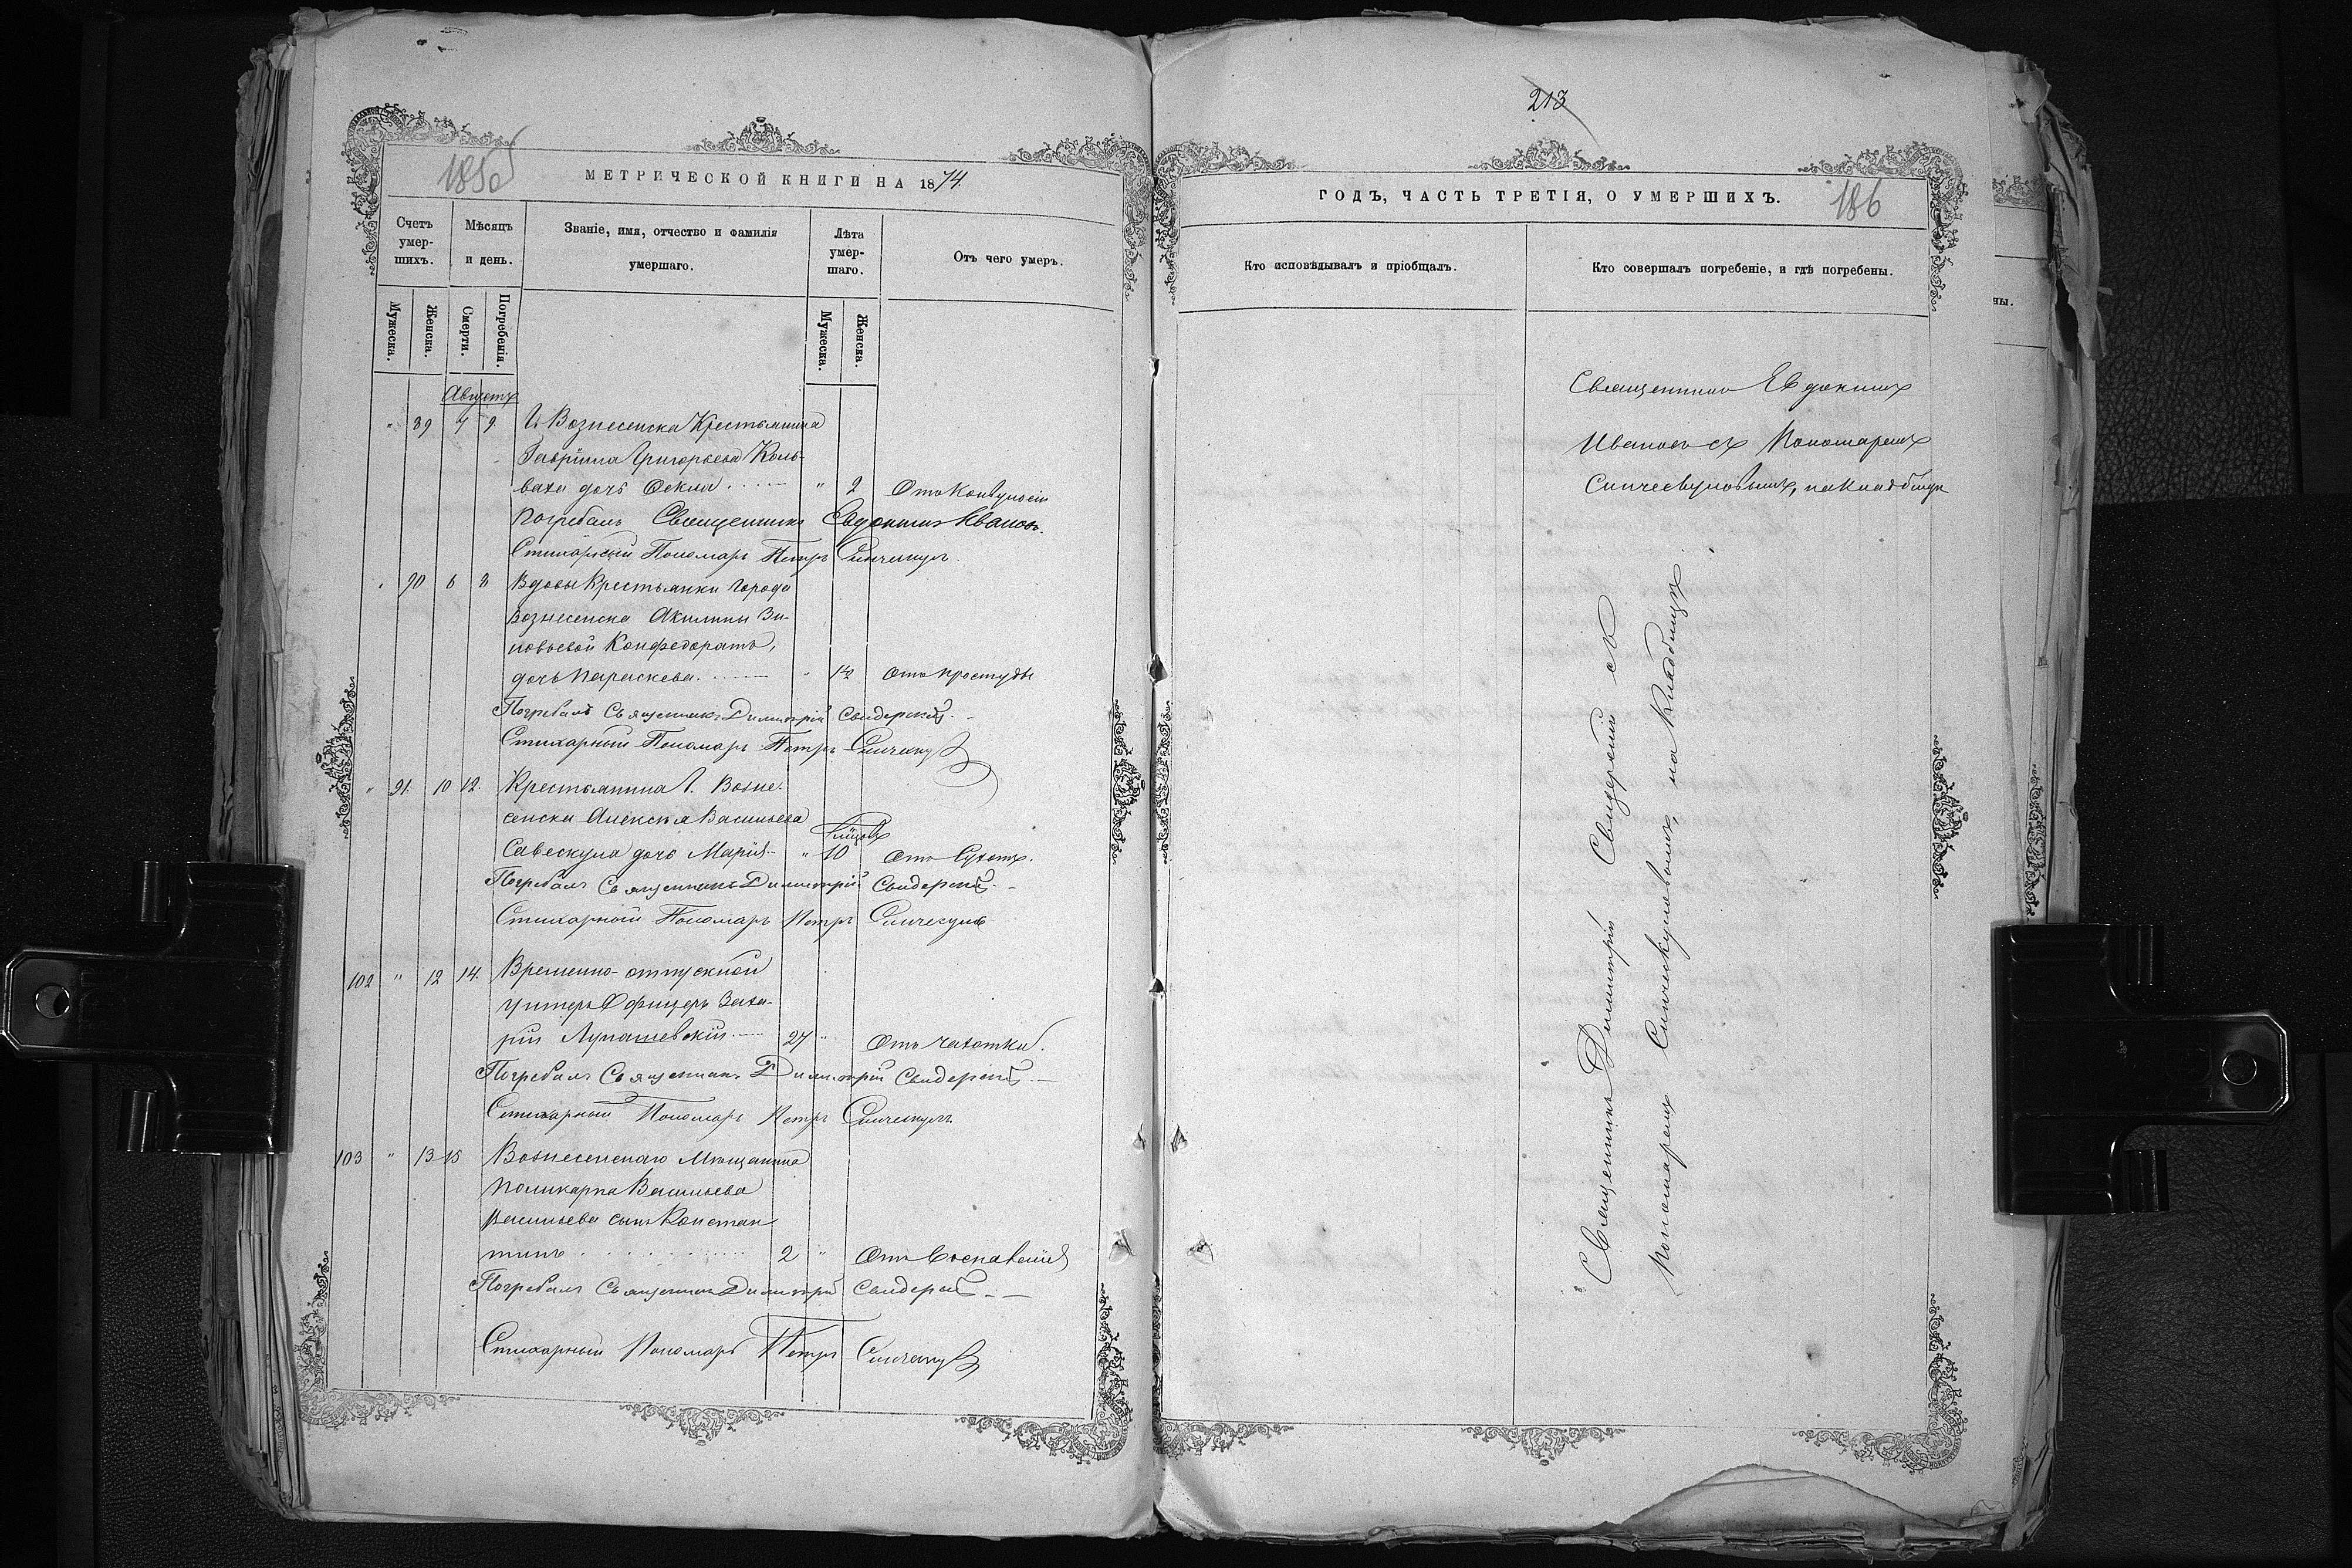 213
185об
МЕТРИЧЕСКОЙ КНИГИ НА 1874.
Счетъ умер-шихъ.
Мѣсяцъ и день.
Званіе, имя, отчество и фамилія умершаго.
Лѣта умер-шаго.
Отъ чего умеръ.
Мужеска.
Женска.
Смерти.
Погребенія.
Мужеска.
Женска.
Августъ
" 89 7 9 Г. Вознесенска Крестьянина
Гавріила Григорьева
дочь " 2
Погребалъ Священникъ Евдокимъ Ивановъ.
Стихарный Пономарь Петръ Синчекулъ.
" 90 6 8 Вдовы Крестьянки города
Вознесенска Акилины Зи-
новьевой Конфедоратъ,
дочь Параскева. " 12 Отъ простуды
Погребалъ Священникъ Димитрій Свидерскій.
Стихарный Пономарь Петръ
" 91. 10 12. Крестьянина Г. Возне-
сенска Алексѣя Васильева
Савескула дочь Марія " 10 Отъ Сухотъ.
Погребалъ Священникъ Димитрій Свидерскій.
Стихарный Пономарь Петръ Синчекулъ
102 " 12 14. Временно-отпускной
Унтеръ Офицеръ Заха-
рій Лупашевскій 27 " Отъ Чахотки.
Погребалъ Священникъ Димитрій Свидерскій.
Стихарный Пономарь Петръ Синчекулъ.
103 " 13 15 Вознесенскаго Мѣщанина
Поликарпа Васильева
Васильева сынъ Констан
тинъ 2 " Отъ Воспаленія
Погребалъ Священникъ Димитрій Свидерскій
Стихарный Пономарь Петръ
ГОДЪ, ЧАСТЬ ТРЕТІЯ, О УМЕРШИХЪ.
186
Кто исповѣдывалъ и пріобщалъ.
Кто совершалъ погребеніе, и гдѣ погребены.
ны.
Священникъ Евдокимъ
Ивановъ съ Пономаремъ
Синчекуловымъ, на кладбищѣ
Священникъ Димитрій Свидерскій съ
Пономаремъ Синчекуловымъ, на Кладбищѣ